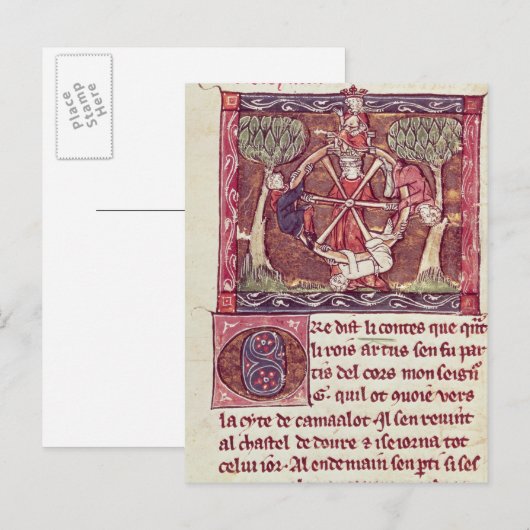 Place
Stamp
Here
Re dist li contes que qñt
li rois artus sen fu par
tis del cors mon seign̄
G. quil ot ꝯuoie vers
la cyte de camaalot. Il sen reuint
al chastel de doure & iseiorna tot
celui ior. Al endemain sen ꝑti si ses